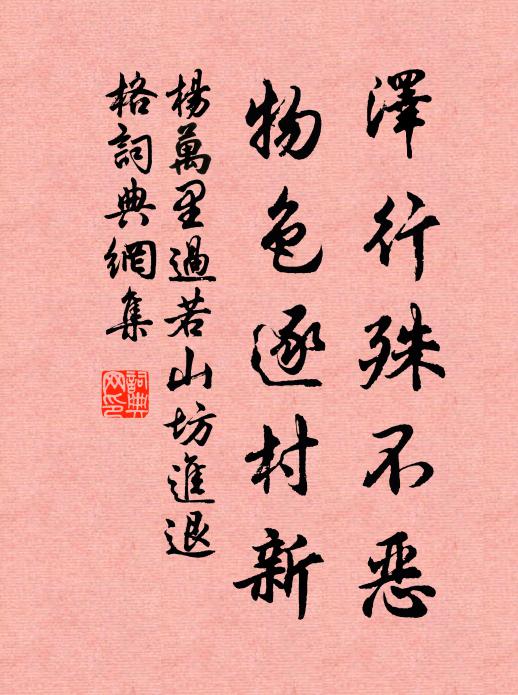 澤行殊不惡
物色逐村新
楊萬里過若山坊進退
格詞典網集
詞典网印